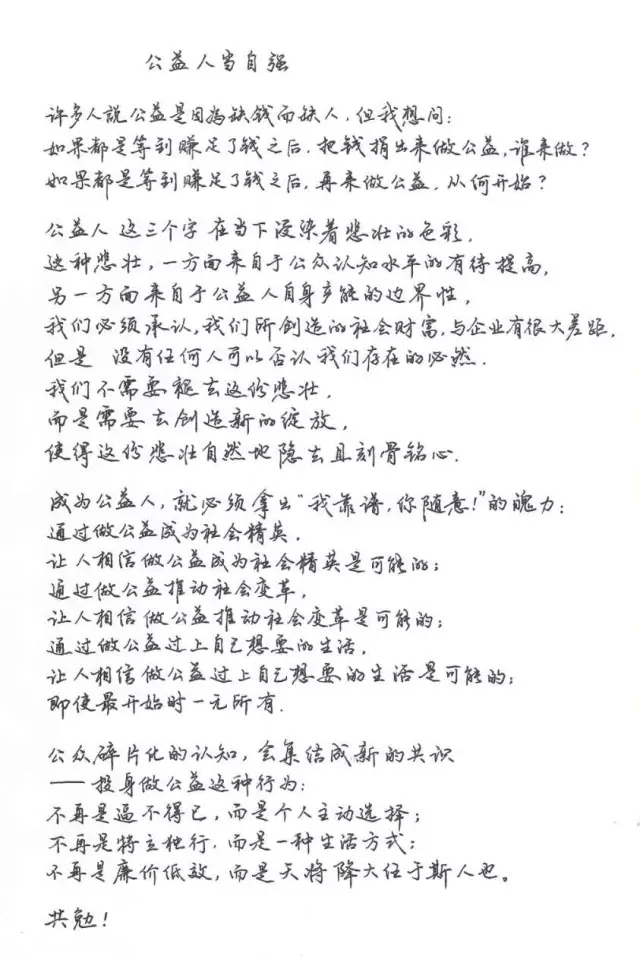 公益人当自强
许多人说公益是因为缺钱而缺人，但我想问：
如果都是等到赚足了钱之后，把钱捐出来做公益，谁来做？
如果都是等到赚足了钱之后，再来做公益，从何开始？
公益人 这三个字 在当下浸染着悲壮的色彩，
这种悲壮，一方面来自于公众认知水平的有待提高，
另一方面来自于公益人自身才能的边界性，
我们必须承认，我们所创造的社会财富，与企业有很大差距，
但是 没有任何人可以否认我们存在的必然．
我们不需要褪去这份悲壮，
而是需要去创造新的绽放，
使得这份悲壮自然地隐去且刻骨铭心．
成为公益人，就必须拿出“我靠谱，你随意！”的魄力：
通过做公益成为社会精英，
让人相信做公益成为社会精英是可能的；
通过做公益推动社会变革，
让人相信做公益推动社会变革是可能的；
通过做公益过上自己想要的生活，
让人相信做公益过上自己想要的生活是可能的；
即使最开始时一无所有．
公众碎片化的认知，会集结成新的共识
——投身做公益这种行为：
不再是逼不得已，而是个人主动选择；
不再是特立独行，而是一种生活方式；
不再是廉价低效，而是天将降大任于斯人也。
共勉！